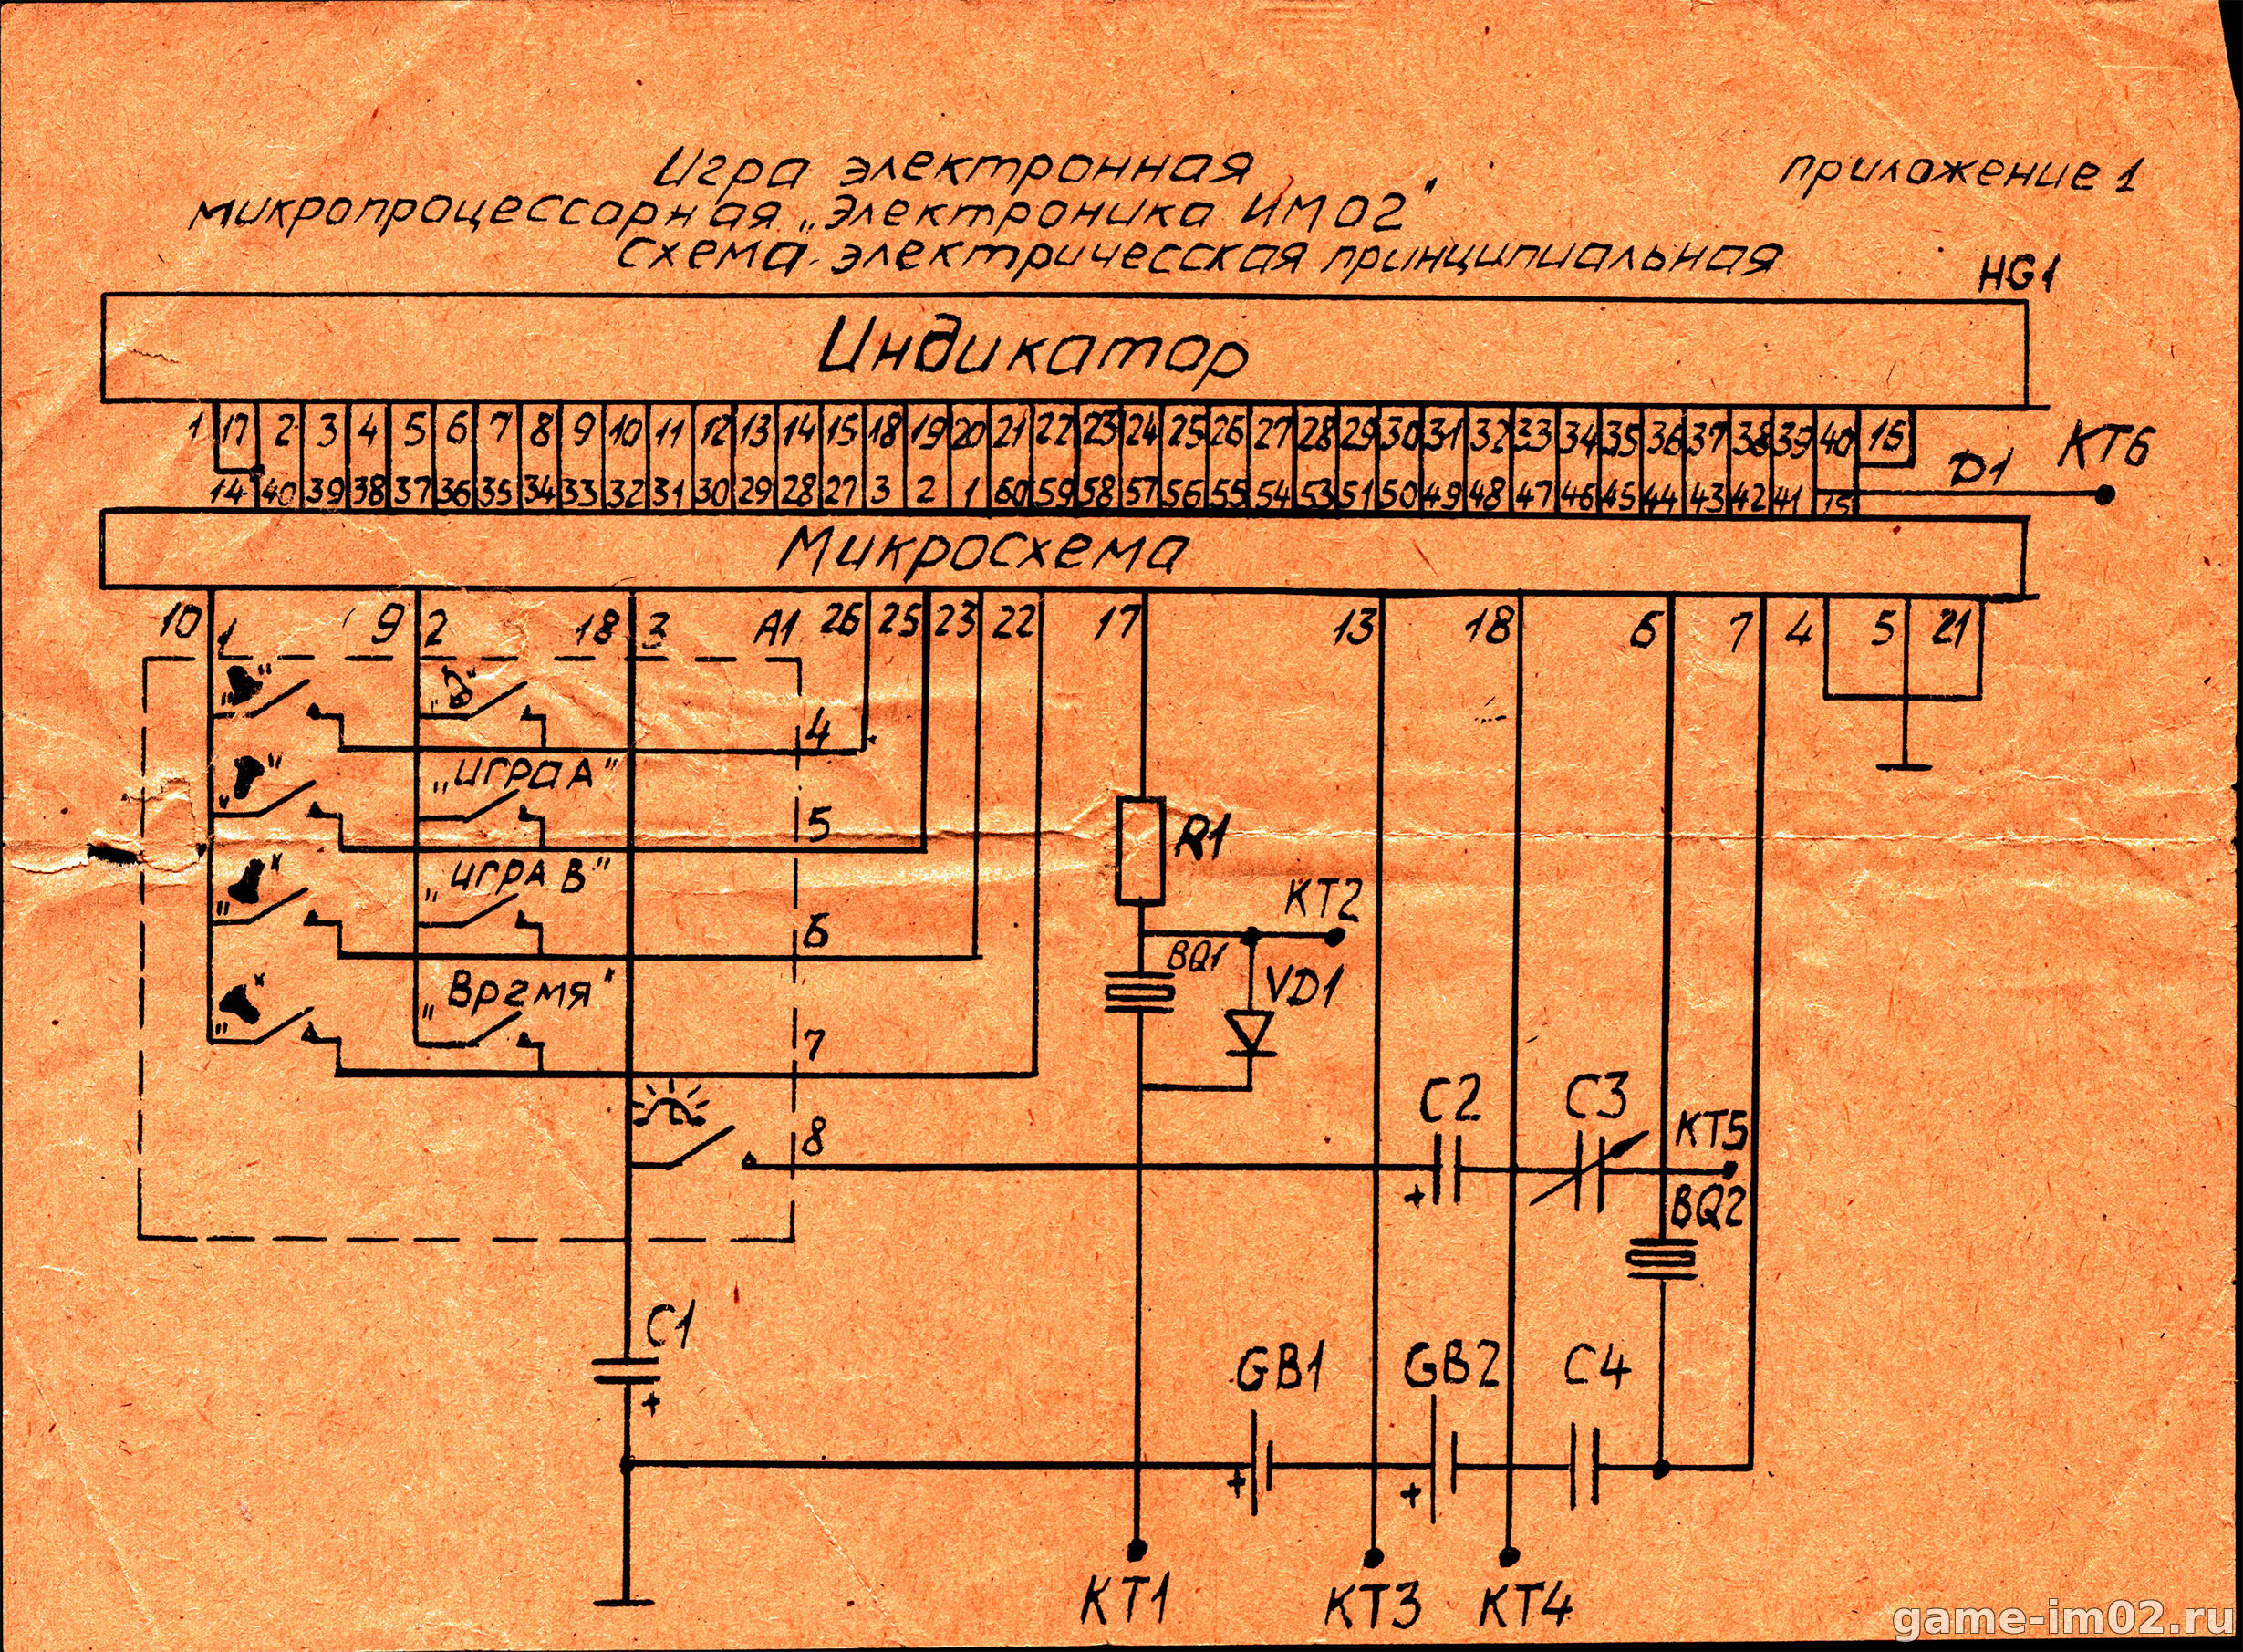 Игра электронная
приложение 1
микропроцессорная „Электроника ИМ02"
схема электрическая принципиальная
HG1
Индикатор
1 17 2 3 4 5 6 7 8 9 10 11 12 13 14 15 18 19 20 21 22 23 24 25 26 27 28 29 30 31 32 33 34 35 36 37 38 39 40 16
КТ6
D1
14 40 39 38 37 36 35 34 33 32 31 30 29 28 27 3 2 1 60 59 58 57 56 55 54 53 51 50 49 48 47 46 45 44 43 42 41 15
Микросхема
10 1 9 2 18 3 А1 26 25 23 22 17 13 18 6 7 4 5 21
4
„игра А"
5
R1
„игра В"
КТ2
6
BQ1
„Время"
VD1
7
C2
C3
КТ5
8
BQ2
+
C1
+
GB1
GB2
C4
+
+
КТ1
КТ3
КТ4
game-im02.ru